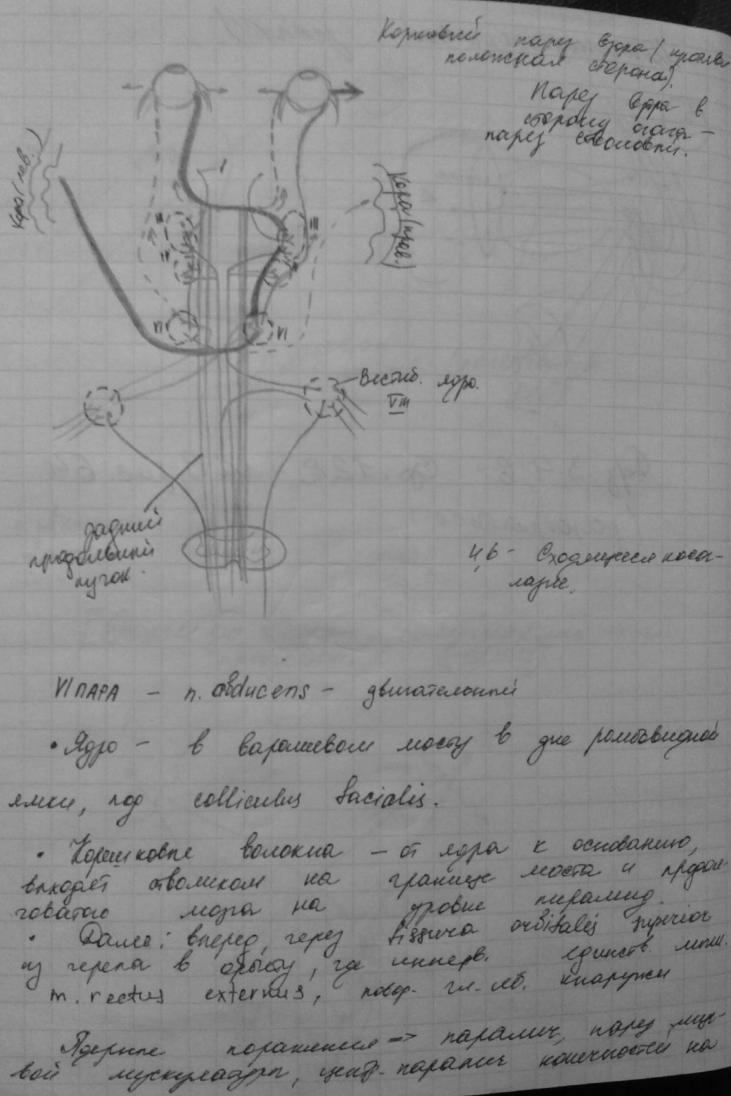 Корковый парез взора (противо
положная сторона).
Парез взора в
сторону очага –
парез стволовый.
Кора (лев.)
I
Кора (прав.)
III
III
VI
VI
Вестиб. ядро.
VIII
задний
продольный
пучок.
4,6 – Сходящееся косо-
глазие.
VI ПАРА – n. abducens – двигательный
• Ядро – в варолиевом мосту в дне ромбовидной
ямки, под colliculus facialis.
• Корешковые волокна – от ядра к основанию,
выходят стволиком на границе моста и продол-
говатого мозга на уровне пирамид.
• Далее: вперед, через fissura orbitalis superior
из черепа в орбиту, где иннерв. единств. мышц.
m. rectus externus, повор. гл. яб. кнаружи
Ядерные поражения => паралич, парез мими-
вой мускулатуры, центр. паралич конечностей на